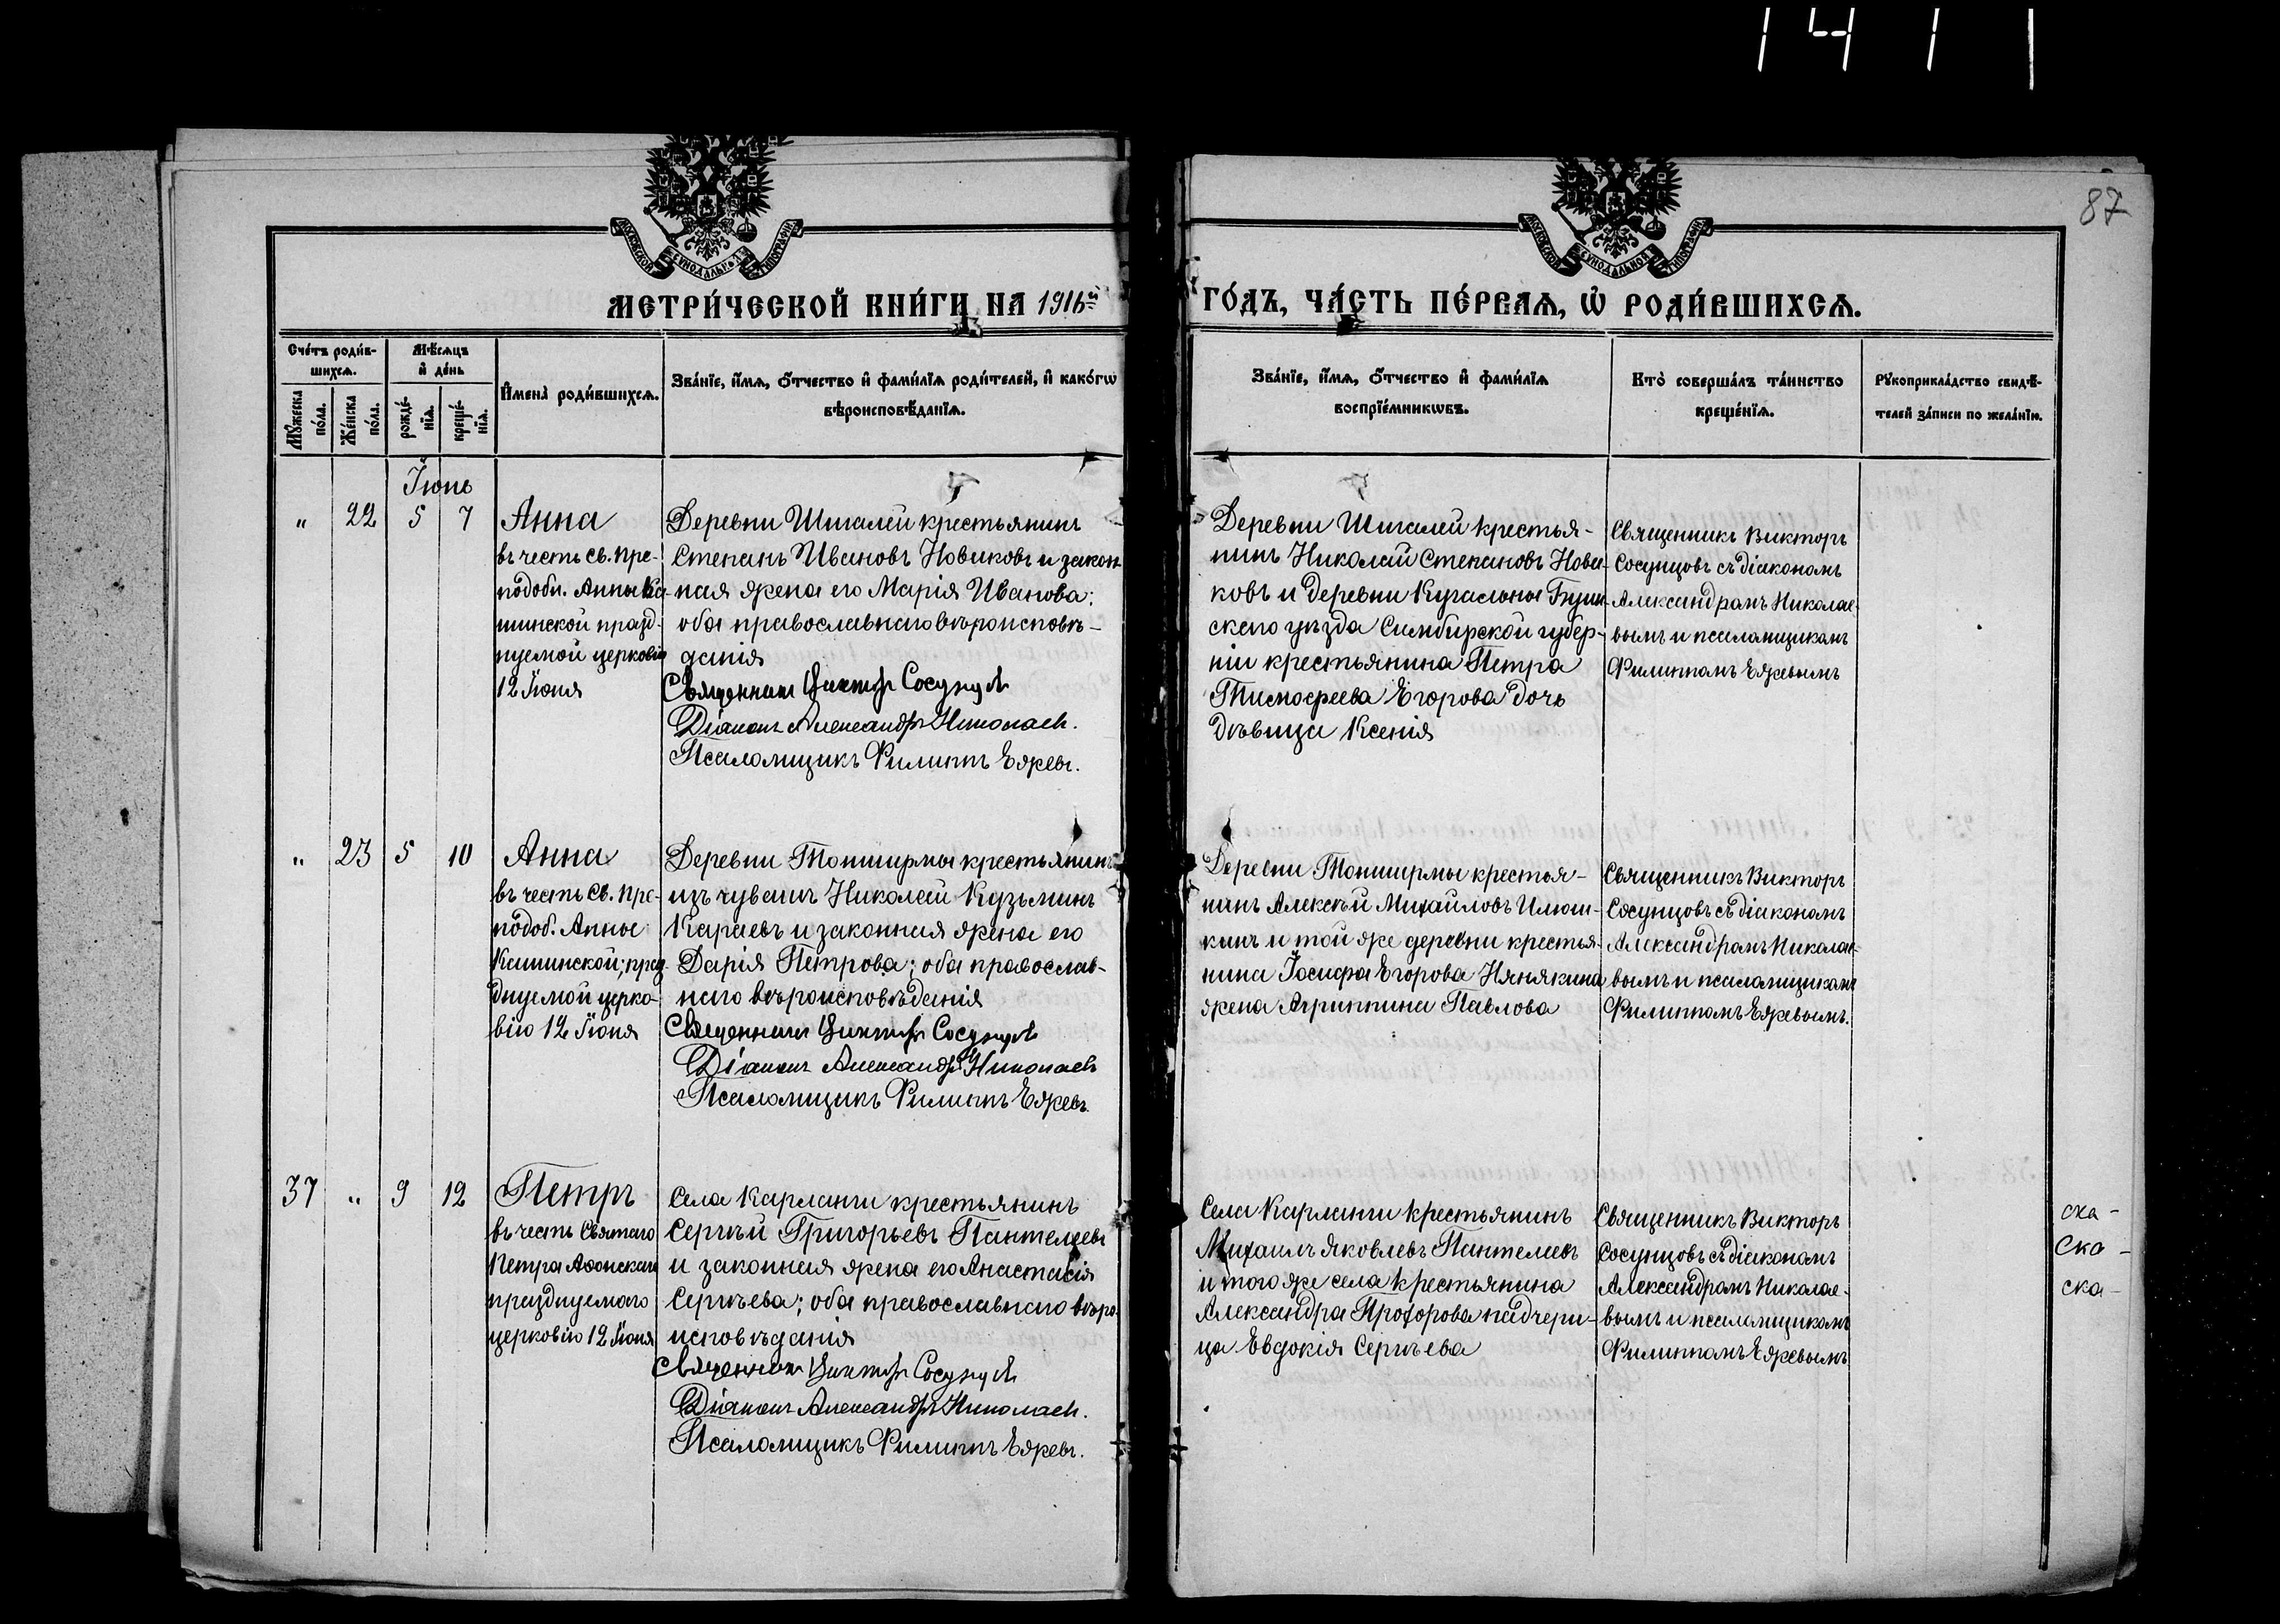 1411
87
МОСКОВСКОЙ СѴНОДАЛЬНОЙ ТИПОГРАФІИ
МОСКОВСКОЙ СѴНОДАЛЬНОЙ ТИПОГРАФІИ
МЕТРИ́ЧЕСКОЙ КНИ́ГИ НА 1916й
ГО́ДЪ, ЧА́СТЬ ПЕ́РВАѦ, Ѡ҆ РОДИ́ВШИХСѦ.
Сче́тъ роди́в-
шихсѧ.
Мꙋ́жеска
по́ла.
Же́нска
по́ла.
Мѣ́сѧцъ
и҆ де́нь
рожде́-
нїѧ.
креще́-
нїѧ.
И҆мена̀ роди́вшихсѧ.
Зва́нїе, и҆́мѧ, ѻ҆́тчество и҆ фами́лїѧ роди́телей, и҆ како́гѡ
вѣроисповѣ́данїѧ.
Зва́нїе, и҆́мѧ, ѻ҆́тчество и҆ фами́лїѧ
воспрїе́мникѡвъ.
Кто̀ соверша́лъ та́инство
креще́нїѧ.
Рꙋкоприкла́дство свидѣ́-
телей за́писи по жела́нїю.
Іюнь
" 22 5 7
Анна
въ честь св. пре-
подобн. Анны Ка-
шинской празд-
нуемой церковію
12 Іюня
Деревни Шигалей крестьянинъ
Степанъ Ивановъ Новиковъ и закон-
ная жена его Марія Иванова;
оба православнаго вѣроисповѣ-
данія
Священникъ Викторъ Сосунцовъ
Діаконъ Александръ Николаевъ.
Псаломщикъ Филиппъ Ежевъ.
Деревни Шигалей крестья-
нинъ Николай Степановъ Нови-
ковъ и деревни Кугальны Буин-
скаго уѣзда Симбирской губер-
ніи крестьянина Петра
Тимофеева Егорова дочь
дѣвица Ксенія
Священникъ Викторъ
Сосунцовъ съ діакономъ
Александромъ Николае-
вымъ и псаломщикомъ
Филиппомъ Ежевымъ
" 23 5 10
Анна
въ честь Св. Пре-
подоб. Анны
Кашинской; праз-
днуемой церко-
вію 12 Іюня
Деревни Топширмы крестьянинъ
изъ чувашъ Николай Кузьминъ
Караевъ и законная жена его
Дарія Петрова; оба православ-
наго вѣроисповѣданія
Священникъ Викторъ Сосунцовъ
Діаконъ Александръ Николаевъ
Псаломщикъ Филиппъ Ежевъ.
Деревни Топширмы крестья-
нинъ Алексѣй Михайловъ Илюш-
кинъ и той же деревни крестья-
нина Іосифа Егорова Нянякина
жена Агриппина Павлова
Священникъ Викторъ
Сосунцовъ съ діакономъ
Александромъ Николае-
вымъ и псаломщикомъ
Филиппомъ Ежевымъ.
37 " 9 12
Петръ
въ честь Святаго
Петра Аѳонскаго
празднуемаго
церковію 12 Іюня
Села Карланги крестьянинъ
Сергѣй Григорьевъ Пантелеевъ
и законная жена его Анастасія
Сергѣева; оба православнаго вѣро-
исповѣданія
Священникъ Викторъ Сосунцовъ
Діаконъ Александръ Николаевъ.
Псаломщикъ Филиппъ Ежевъ.
Села Карланги крестьянинъ
Михаилъ Яковлевъ Пантелеевъ
и того же села крестьянина
Александра Прохорова падчери-
ца Евдокія Сергѣева
Священникъ Викторъ
Сосунцовъ съ діакономъ
Александромъ Николае-
вымъ и псаломщикомъ
Филиппомъ Ежевымъ
ска-
ска-
ска-